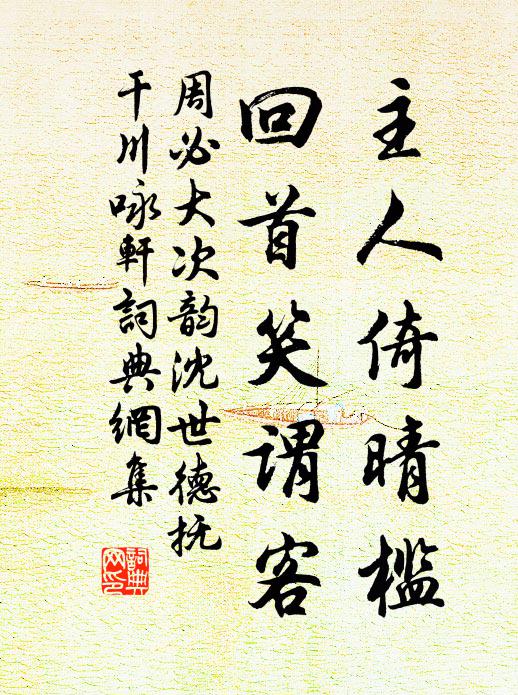 主人倚晴檻
回首笑謂客
周必大次韵沈世德抚
干川咏軒詞典網集
詞典网印